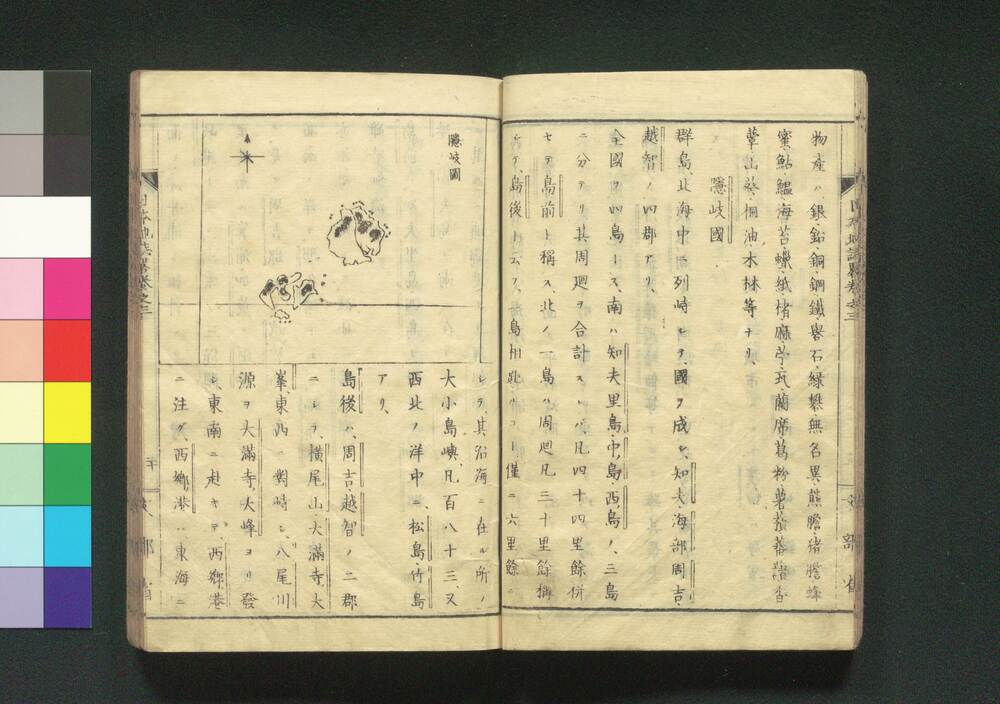 物産ハ銀、鉛、銅、鋼鐵、礜石、緑礬、無名異、熊膽、猪膽、蜂
蜜、鮎、鰮、海苔、蠟、紙、楮、麻苧、瓦、蘭席、葛粉、薯蕷、蕃
蕈、山葵、桐油、木材等ナリ、
隱岐國
群島、北海中ニ列峙シテ國ヲ成ス、知夫、海部、周吉、
越智ノ四郡アリ、
全國ヲ四島トス、南ハ知夫里島、中島、西島ノ、三島
ニ分テリ其周廻ヲ合計スレハ、凡四十四里餘、併
セテ島前ト稱ス、北ノ一島ハ周廻凡三十里餘、稱
シテ、島後ト云フ、島相距ルコト僅ニ六里餘ニ
隱岐圖
シテ、其沿海ニ在ル所ノ
大小島嶼凡百八十三、又
西北ノ洋中ニ、松島、竹島
アリ、
島後ハ、周吉越智ノ二郡
ニシテ、横尾山、大滿寺、大
峯、東西ニ對峙シ、八尾川
源ヲ大滿寺、大峰ヨリ發
シ、東南ニ赴キテ、西郷港
ニ注グ、西郷港ハ東海ニ
日本地誌畧卷之三
文部省